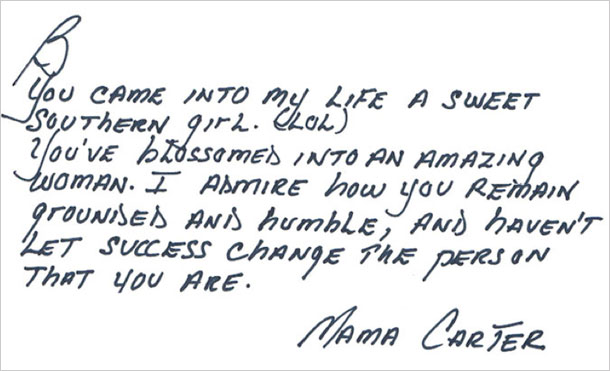 B
You came into my life a sweet
Southern girl. (LOL)
You've blossomed into an amazing
woman. I admire how you remain
grounded and humble, and haven't
let success change the person
that you are.
Mama Carter